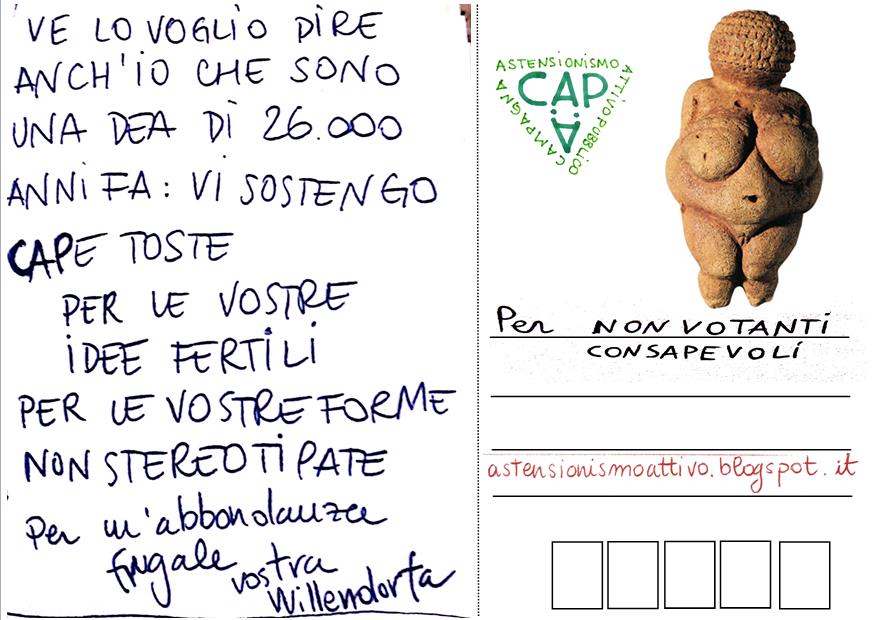 VE LO VOGLIO DIRE
ANCH'IO CHE SONO
UNA DEA DI 26.000
ANNI FA: VI SOSTENGO
CAPE TOSTE
PER LE VOSTRE
IDEE FERTILI
PER LE VOSTRE FORME
NON STEREOTIPATE
Per un'abbondanza
frugale vostra
Willendorfa
ASTENSIONISMO
ATTIVO PUBBLICO
CAMPAGNA
CAP
A
Per NON VOTANTI
CONSAPEVOLI
astensionismoattivo.blogspot.it